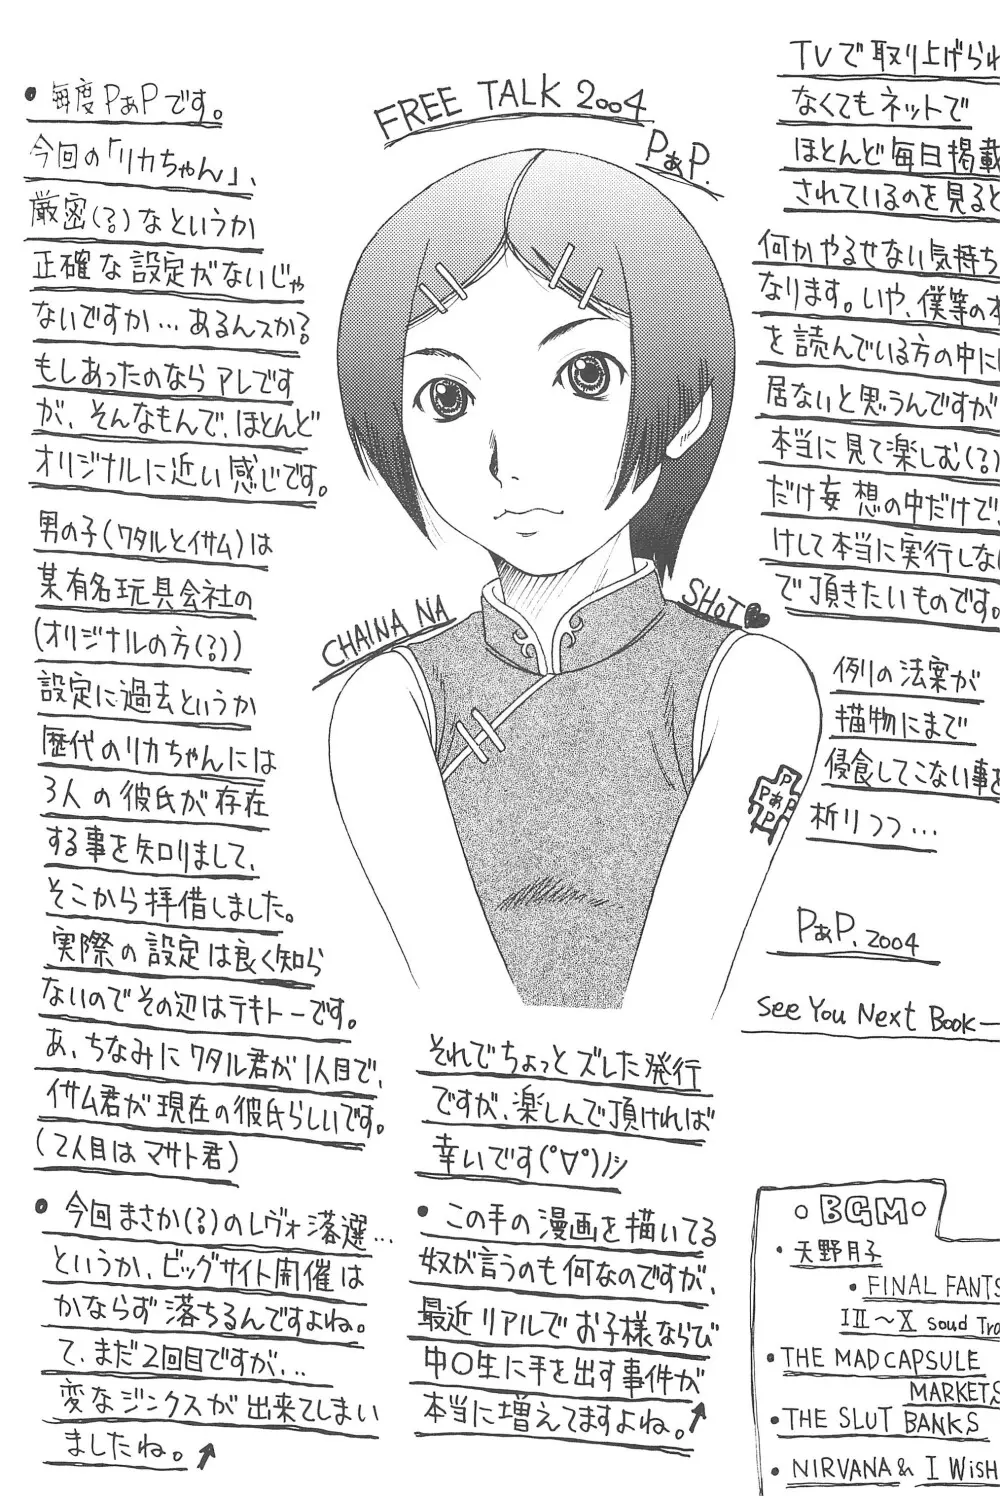 FREE TALK 2004
PぁP.
• 毎度PぁPです。
今回の「リカちゃん」、
厳密(?)なというか
正確な設定がないじゃ
ないですか…あるんスか?
もしあったのならアレです
が、そんなもんで、ほとんど
オリジナルに近い感じです。
男の子(ワタルとイサム)は
某有名玩具会社の
(オリジナルの方(?))
設定に過去というか
歴代のリカちゃんには
3人の彼氏が存在
する事を知りまして、
そこから拝借しました。
実際の設定は良く知ら
ないのでその辺はテキトーです。
あ、ちなみにワタル君が1人目で、
イサム君が現在の彼氏らしいです。
(2人目はマサト君)
• 今回まさか(?)のレヴォ落選…
というか、ビッグサイト開催は
かならず落ちるんですよね。
て、まだ2回目ですが…
変なジンクスが出来てしまい
ましたね。↗
それでちょっとズレた発行
ですが、楽しんで頂ければ
幸いです(°∀°)ノシ
• この手の漫画を描いてる
奴が言うのも何なのですが、
最近リアルでお子様ならび
中〇生に手を出す事件が
本当に増えてますよね。↗
TVで取り上げられ
なくてもネットで
ほとんど毎日掲載
されているのを見ると
何かやるせない気持ち
なります。いや、僕等の本
を読んでいる方の中に
居ないと思うんですが
本当に見て楽しむ(?)
だけ妄想の中だけで、
けして本当に実行しない
で頂きたいものです。
例の法案が
描物にまで
侵食してこない事を
祈りつつ…
PぁP. 2004
See You Next Book—
CHAINA NA
SHOT♥
P
PぁP
P
◦BGM◦
• 天野月子
• FINAL FANTS
III〜X soud Tra
• THE MAD CAPSULE
MARKETS
• THE SLUT BANKS
• NIRVANA & I WiSH